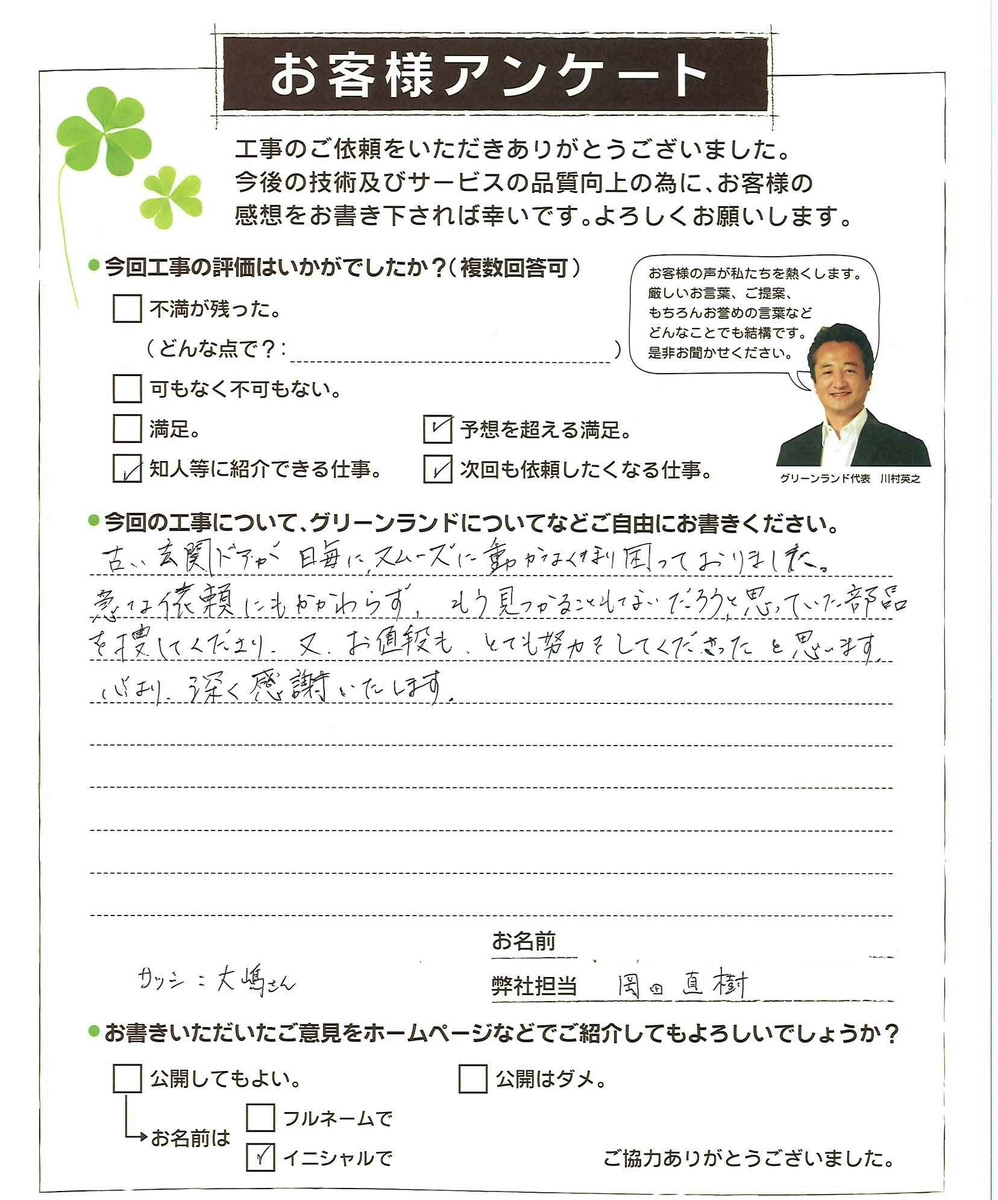 お客様アンケート
工事のご依頼をいただきありがとうございました。
今後の技術及びサービスの品質向上の為に、お客様の
感想をお書き下されば幸いです。よろしくお願いします。
今回工事の評価はいかがでしたか?(複数回答可)
お客様の声が私たちを熱くします。
厳しいお言葉、ご提案、
もちろんお誉めの言葉など
どんなことでも結構です。
是非お聞かせください。
不満が残った。
(どんな点で?: )
可もなく不可もない。
満足。
予想を超える満足。
知人等に紹介できる仕事。
次回も依頼したくなる仕事。
グリーンランド代表 川村英之
今回の工事について、グリーンランドについてなどご自由にお書きください。
古い玄関ドアが 日毎に、スムーズに動かなくなり困っておりました。
急な依頼にもかかわらず、もう見つかることもないだろうと思っていた部品
を捜してくださり、又、お値段も、とても努力をしてくださったと思います。
心より、深く感謝いたします。
お名前
サッシ:大嶋さん
弊社担当 岡田直樹
お書きいただいたご意見をホームページなどでご紹介してもよろしいでしょうか?
公開してもよい。
公開はダメ。
お名前は
フルネームで
イニシャルで
ご協力ありがとうございました。